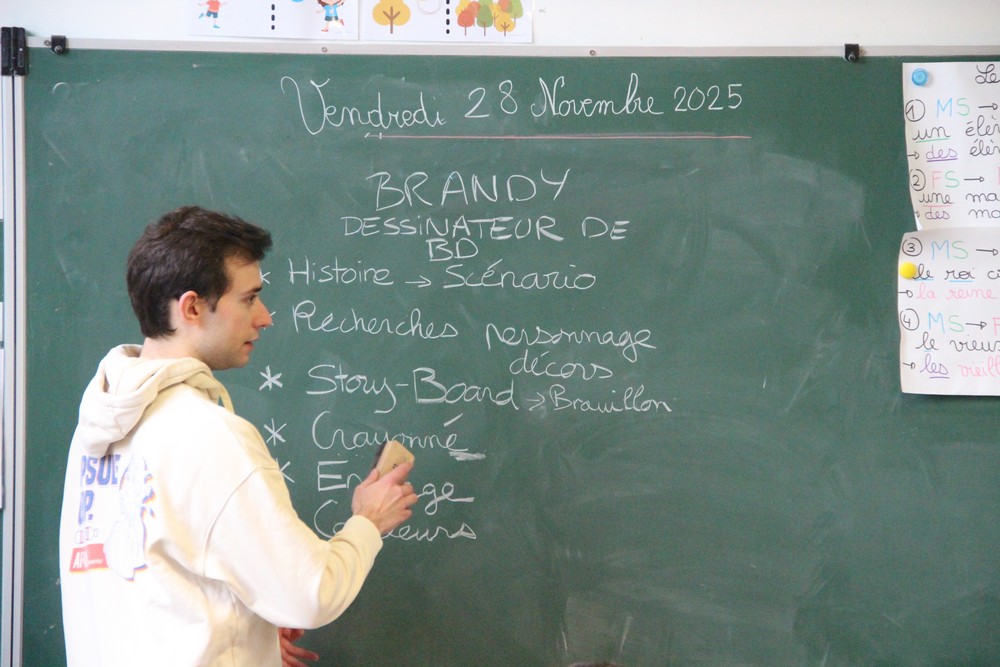 Vendredi 28 Novembre 2025
BRANDY
DESSINATEUR DE
BD
* Histoire → Scénario
* Recherches personnage
décors
* Story-Board → Brouillon
* Crayonné
* En ge
C leurs
① MS →
un élè
→ des élè
② FS →
une ma
→ des ma
③ MS →
le roi c
→ la reine
④ MS →
le vieux
→ les vieil